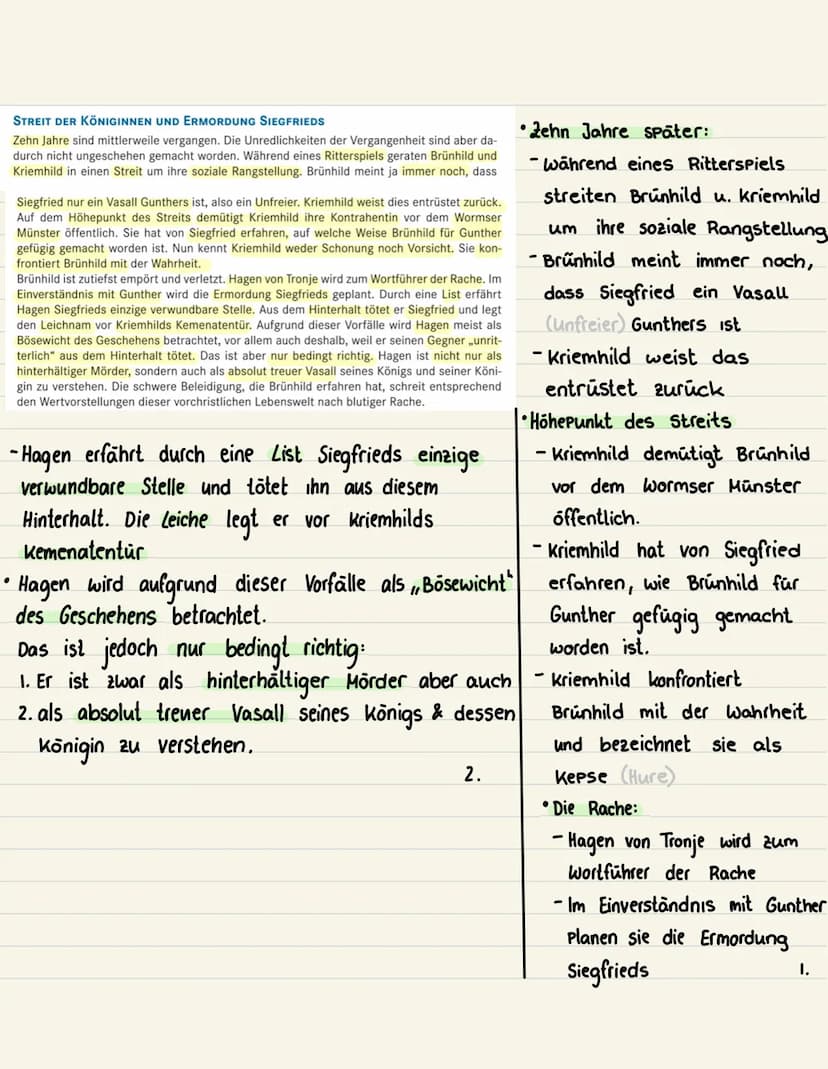 STREIT DER KÖNIGINNEN UND ERMORDUNG SIEGFRIEDS
Zehn Jahre sind mittlerweile vergangen. Die Unredlichkeiten der Vergangenheit sind aber da-
durch nicht ungeschehen gemacht worden. Während eines Ritterspiels geraten Brünhild und
Kriemhild in einen Streit um ihre soziale Rangstellung. Brünhild meint ja immer noch, dass
Siegfried nur ein Vasall Gunthers ist, also ein Unfreier. Kriemhild weist dies entrüstet zurück.
Auf dem Höhepunkt des Streits demütigt Kriemhild ihre Kontrahentin vor dem Wormser
Münster öffentlich. Sie hat von Siegfried erfahren, auf welche Weise Brünhild für Gunther
gefügig gemacht worden ist. Nun kennt Kriemhild weder Schonung noch Vorsicht. Sie kon-
frontiert Brünhild mit der Wahrheit.
Brünhild ist zutiefst empört und verletzt. Hagen von Tronje wird zum Wortführer der Rache. Im
Einverständnis mit Gunther wird die Ermordung Siegfrieds geplant. Durch eine List erfährt
Hagen Siegfrieds einzige verwundbare Stelle. Aus dem Hinterhalt tötet er Siegfried und legt
den Leichnam vor Kriemhilds Kemenatentür. Aufgrund dieser Vorfälle wird Hagen meist als
Bösewicht des Geschehens betrachtet, vor allem auch deshalb, weil er seinen Gegner „unrit-
terlich“ aus dem Hinterhalt tötet. Das ist aber nur bedingt richtig. Hagen ist nicht nur als
hinterhältiger Mörder, sondern auch als absolut treuer Vasall seines Königs und seiner Köni-
gin zu verstehen. Die schwere Beleidigung, die Brünhild erfahren hat, schreit entsprechend
den Wertvorstellungen dieser vorchristlichen Lebenswelt nach blutiger Rache.
• Zehn Jahre später:
- während eines Ritterspiels
streiten Brünhild u. Kriemhild
um ihre soziale Rangstellung
- Brünhild meint immer noch,
dass Siegfried ein Vasall
(Unfreier) Gunthers ist
- Kriemhild weist das
entrüstet zurück
• Höhepunkt des Streits
- Kriemhild demütigt Brünhild
vor dem Wormser Münster
öffentlich.
- Kriemhild hat von Siegfried
erfahren, wie Brünhild für
Gunther gefügig gemacht
worden ist.
- Kriemhild konfrontiert
Brünhild mit der Wahrheit
und bezeichnet sie als
Kepse (Hure)
• Die Rache:
- Hagen von Tronje wird zum
Wortführer der Rache
- Im Einverständnis mit Gunther
Planen sie die Ermordung
Siegfrieds
1.
- Hagen erfährt durch eine List Siegfrieds einzige
verwundbare Stelle und tötet ihn aus diesem
Hinterhalt. Die Leiche legt er vor Kriemhilds
Kemenatentür
• Hagen wird aufgrund dieser Vorfälle als „Bösewicht“
des Geschehens betrachtet.
Das ist jedoch nur bedingt richtig:
1. Er ist zwar als hinterhältiger Mörder aber auch
2. als absolut treuer Vasall seines Königs & dessen
Königin zu verstehen.
2.